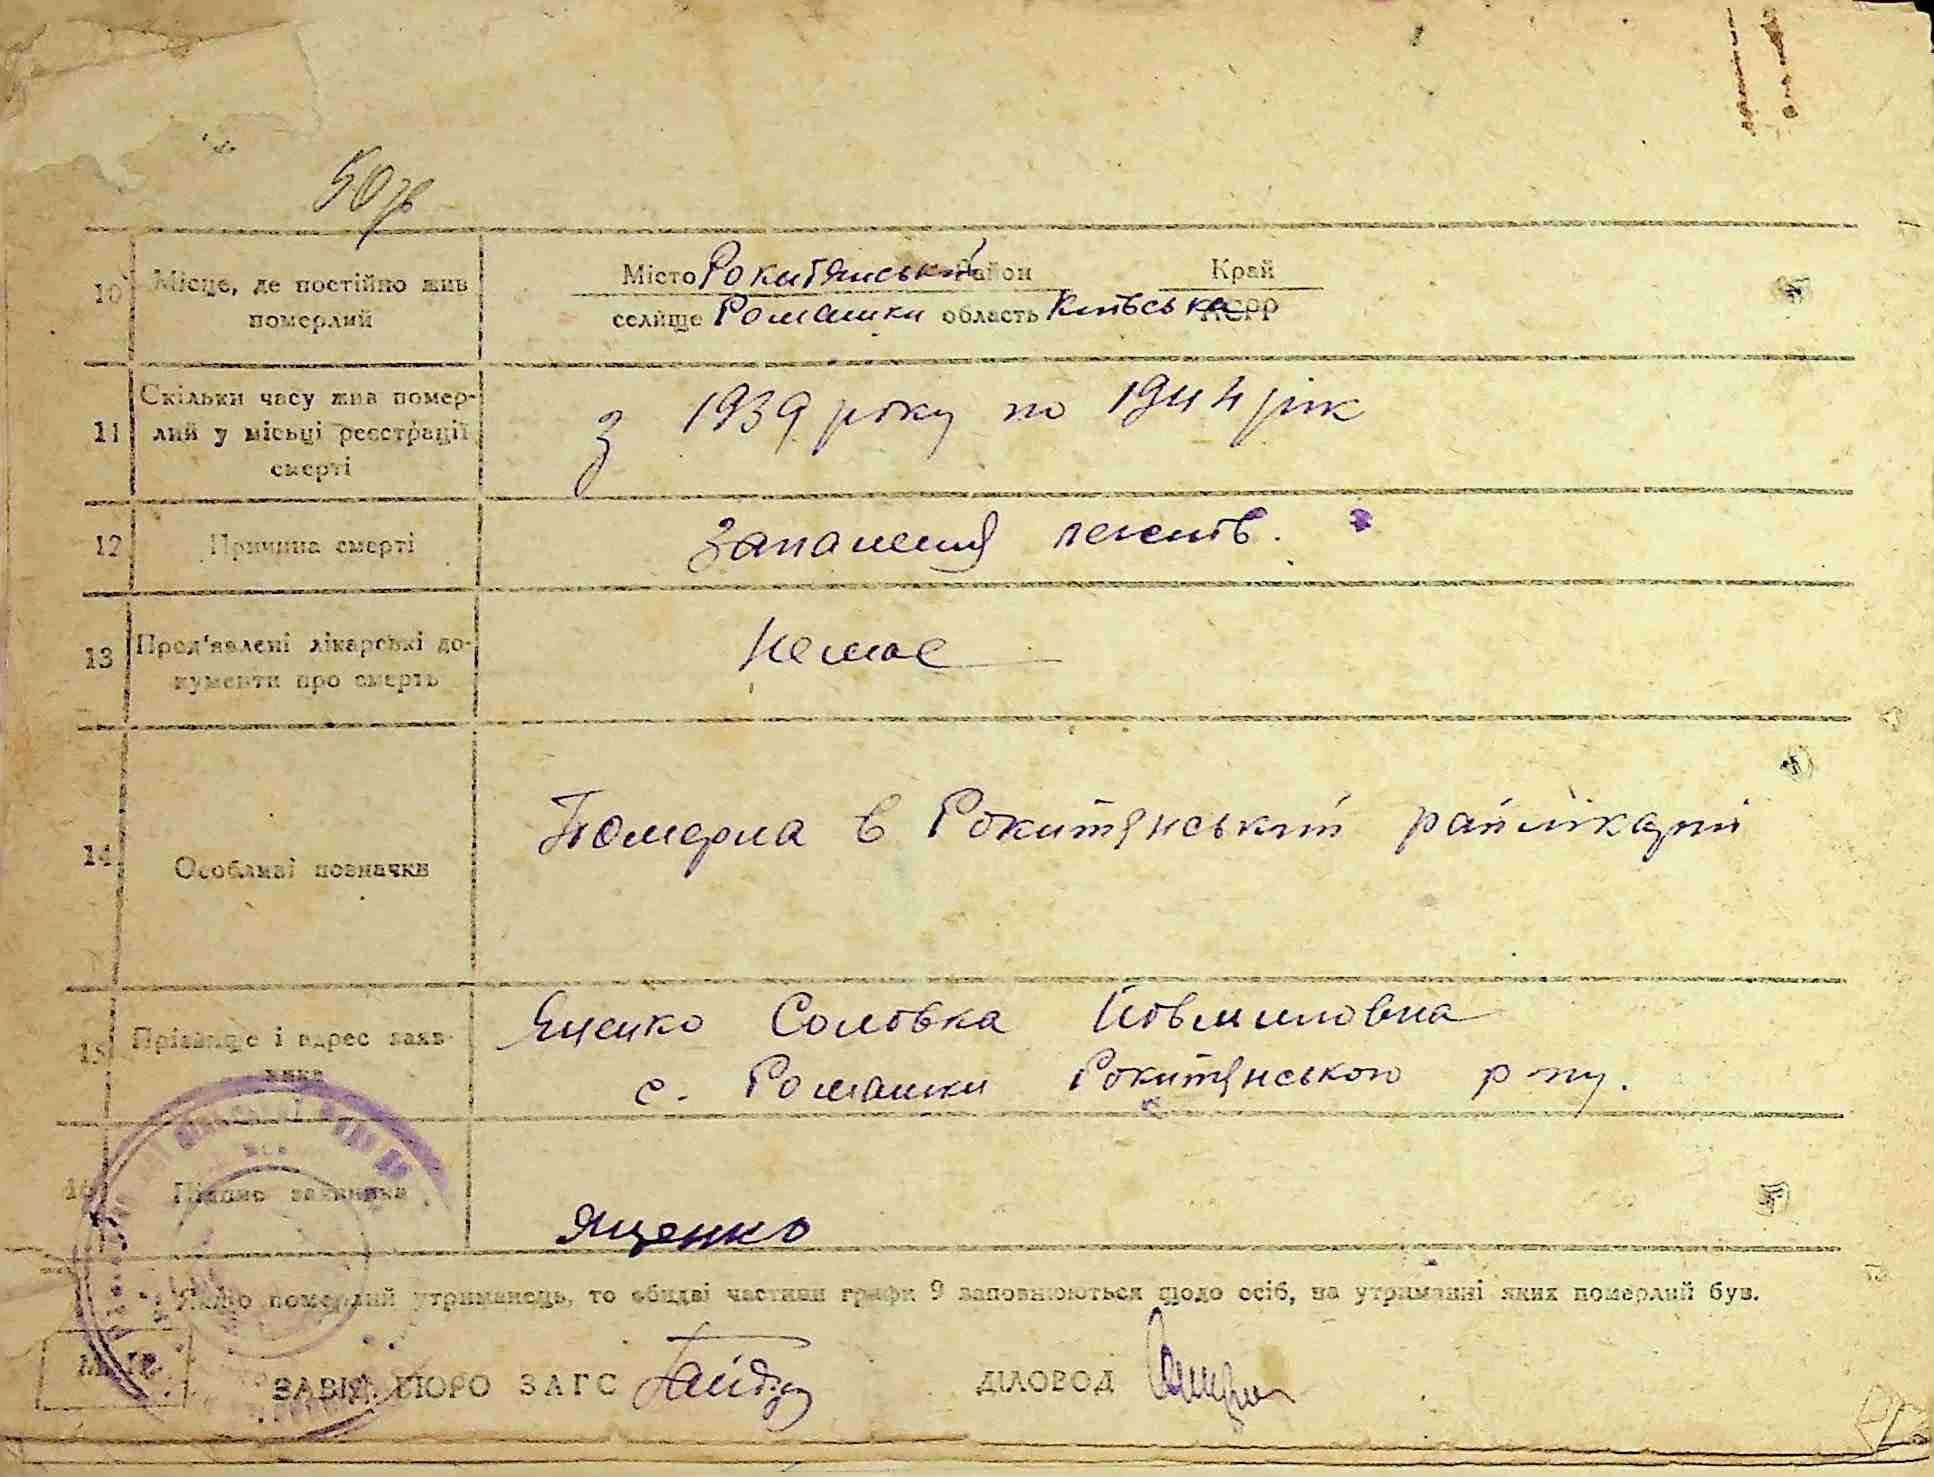 50 зв
10 Місце, де постійно жив померлий
Місто Рокитянський район Край
селище Ромашки область Київська АСРР
11 Скільки часу жив помер-
лий у місьці реєстрації
смерті
з 1939 року по 1944 рік
12 Причина смерті
Запалення легенів.
13 Пред'явлені лікарські до-
кументи про смерть
Немає
14 Особливі позначки
Померла в Рокитянській райлікарні
15 Прізвище і адрес заяв-
ника
Яценко Соловка
с. Ромашки Рокитянського р-ну.
16 Підпис заявника
Яценко
Якщо померлий утриманець, то обидві частини графи 9 заповнюються щодо осіб, на утриманні яких померлий був.
М. П.
ЗАВІД. БЮРО ЗАГС
ДІЛОВОД